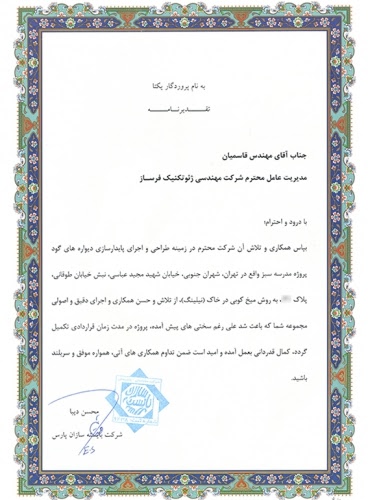 به نام پروردگار یکتا
تقـــدیرنامـــه
جناب آقای مهندس قاسمیان
مدیریت عامل محترم شرکت مهندسی ژئوتکنیک فرساز
با درود و احترام؛
بپاس همکاری و تلاش آن شرکت محترم در زمینه طراحی و اجرای پایدارسازی دیواره های گود
پروژه مدرسه سبز واقع در تهران، شهران جنوبی، خیابان شهید مجید عباسی، نبش خیابان طوقانی،
پلاک ، به روش میخ کوبی در خاک (نیلینگ)، از تلاش و حسن همکاری و اجرای دقیق و اصولی
مجموعه شما که باعث شد علی رغم سختی های پیش آمده، پروژه در مدت زمان قراردادی تکمیل
گردد، کمال قدردانی بعمل آمده و امید است ضمن تداوم همکاری های آتی، همواره موفق و سربلند
باشید.
محسن دیبا
شرکت سازان پارس